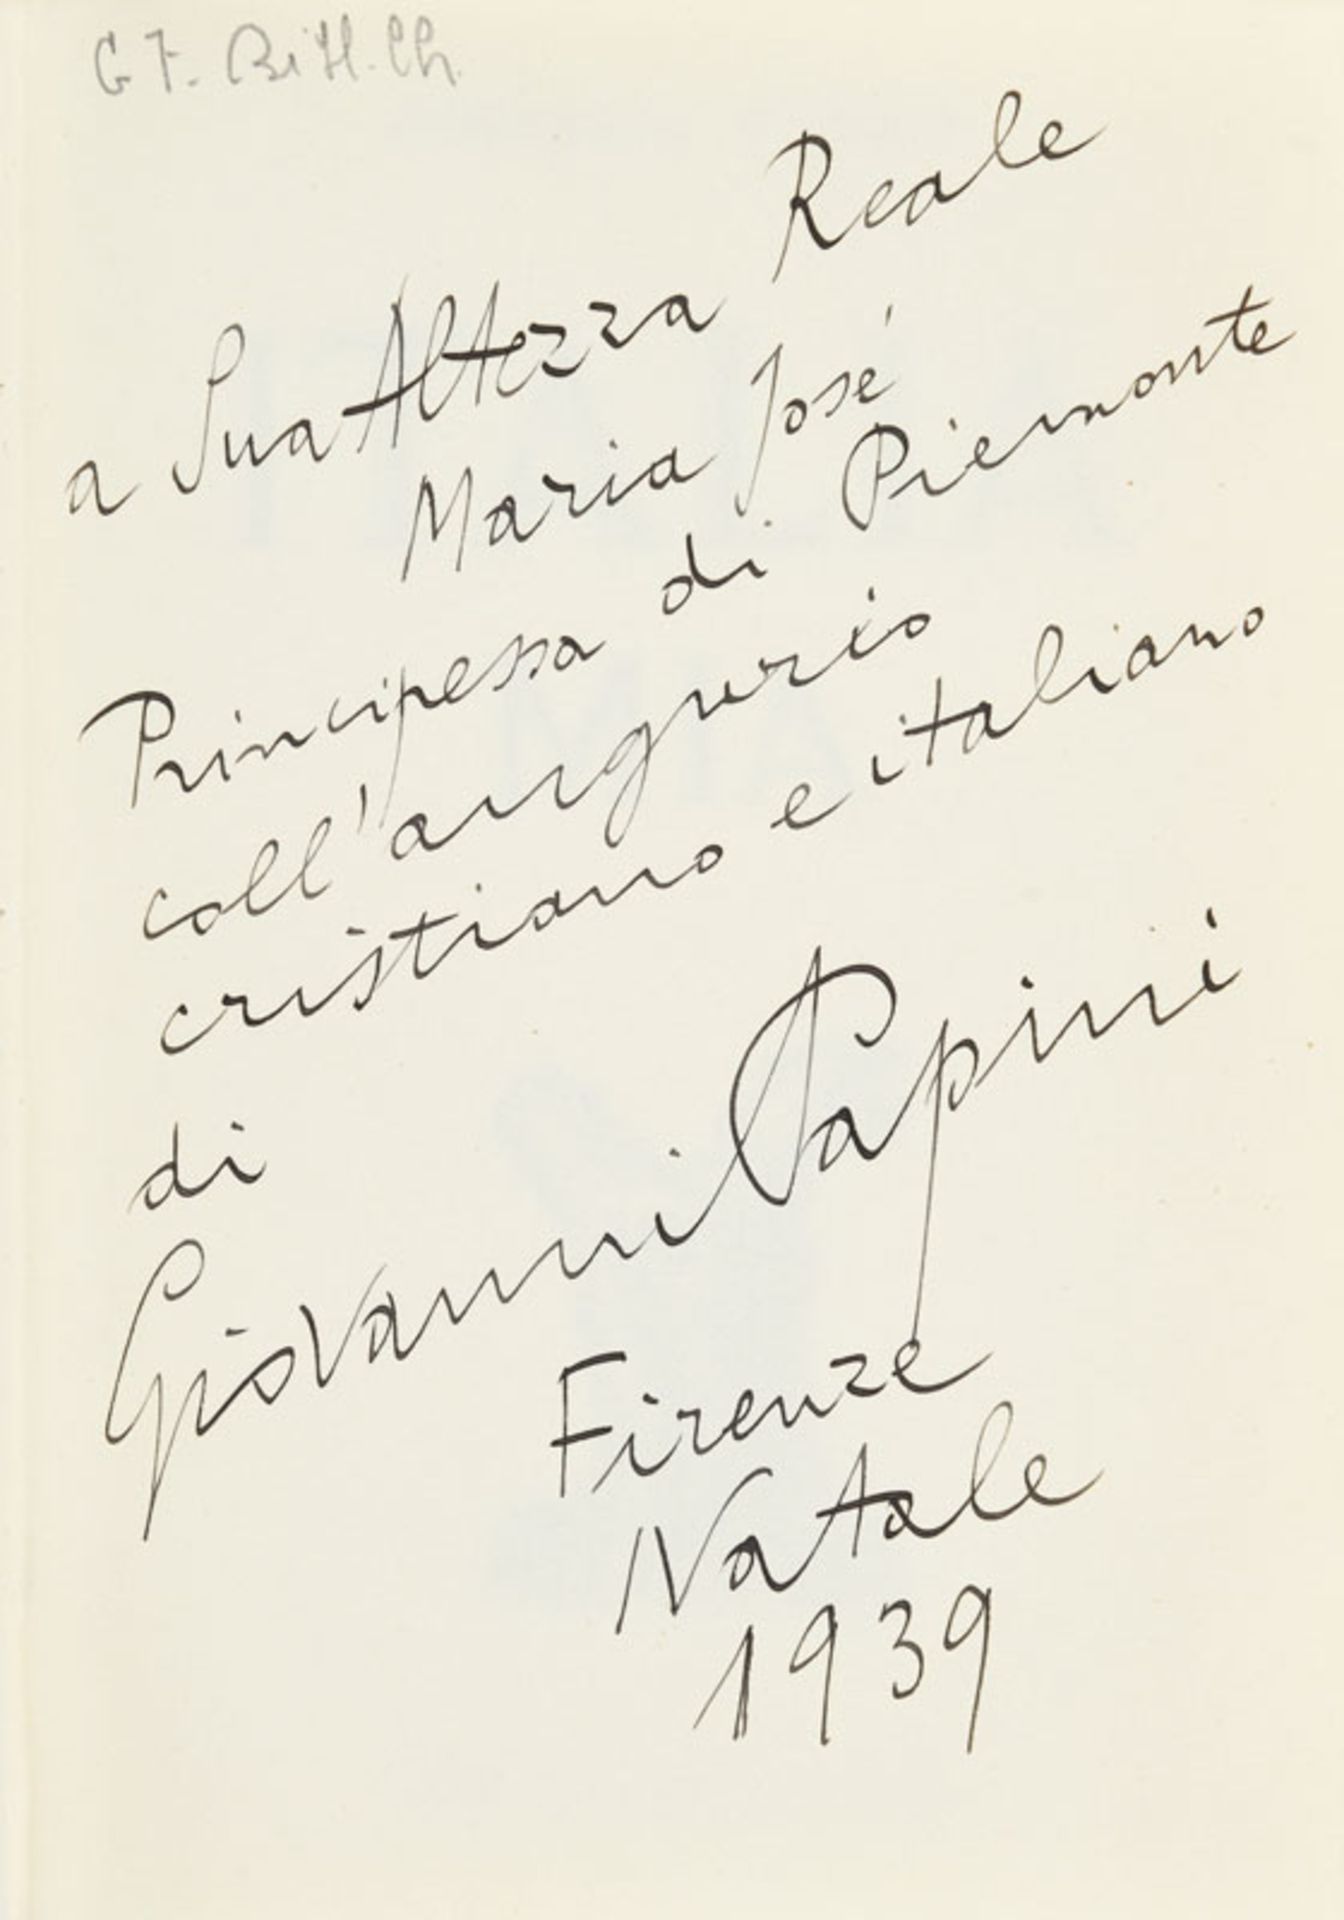 a Sua Altezza Reale
Maria José
Principessa di Piemonte
coll'augurio
cristiano e italiano
di
Giovanni Papini
Firenze
Natale
1939